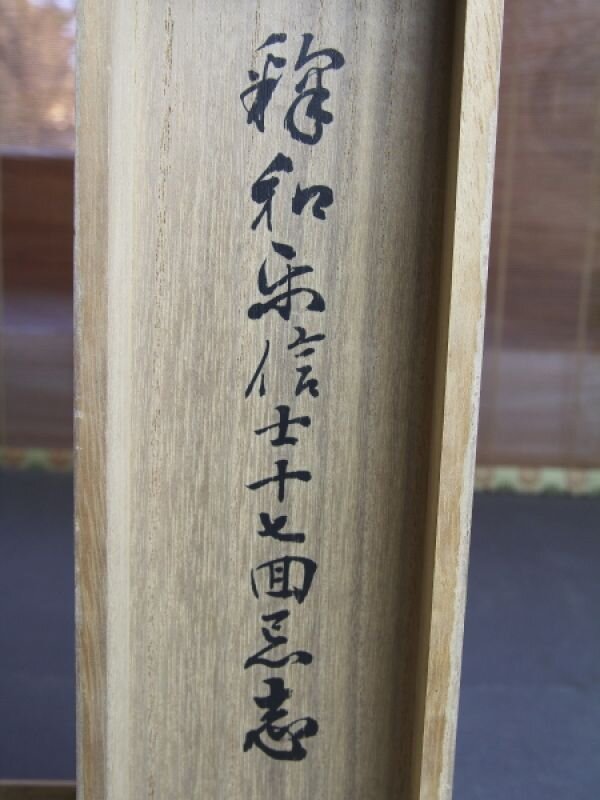 釋和乐信士十七回忌志